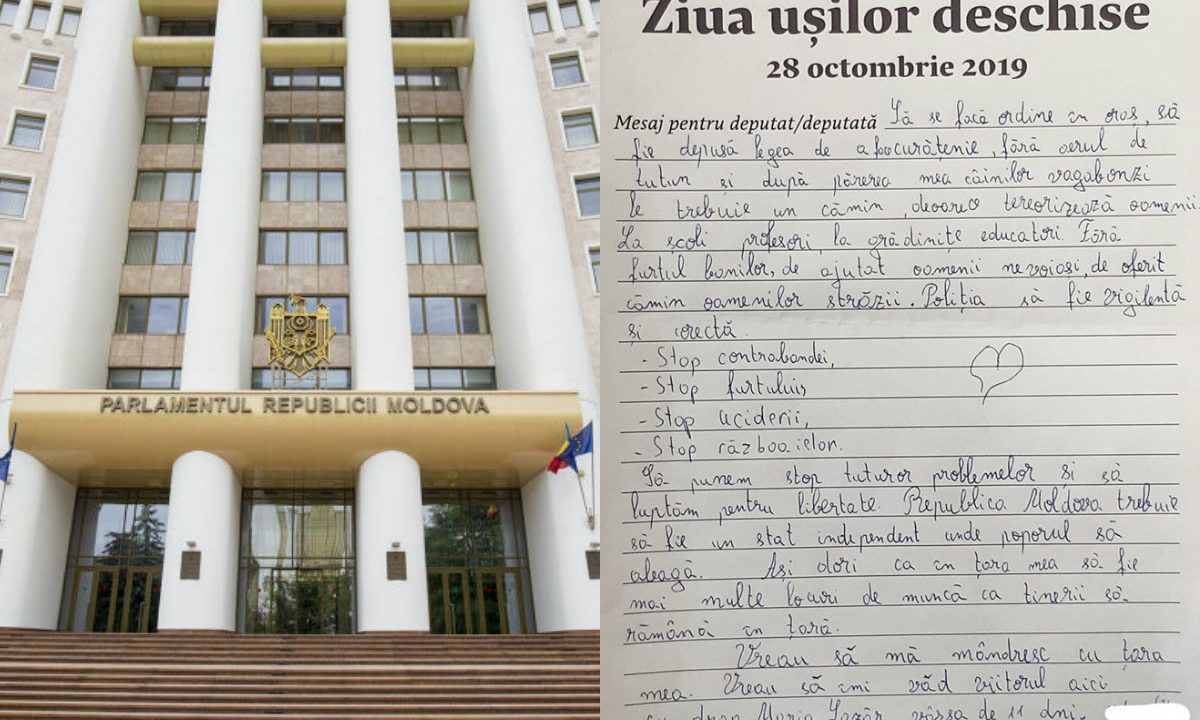 PARLAMENTUL REPUBLICII MOLDOVA
Ziua ușilor deschise
28 octombrie 2019
Mesaj pentru deputat/deputată Să se facă ordine în oraș, să
fie depusă legea de afaacurățenie, fără aerul de
tutun și după părerea mea câinilor vagabonzi
le trebuie un cămin, deoarece tereorizează oamenii.
La școli profesori, la grădinițe educatori. Fără
furtul banilor, de ajutat oamenii nevoiași, de oferit
cămin oamenilor străzii. Poliția să fie vigilentă
și corectă.
- Stop contrabandei,
- Stop furtului,
- Stop uciderii,
- Stop războaielor.
Să punem stop tuturor problemelor și să
luptăm pentru libertate. Republica Moldova trebuie
să fie un stat independent unde poporul să
aleagă. Ași dori ca în țara mea să fie
mai multe locuri de muncă ca tinerii să
rămână în țară.
Vreau să mă mândresc cu țara
mea. Vreau să îmi văd viitorul aici
cu drag Maria Lazăr vârsa de 11 ani.